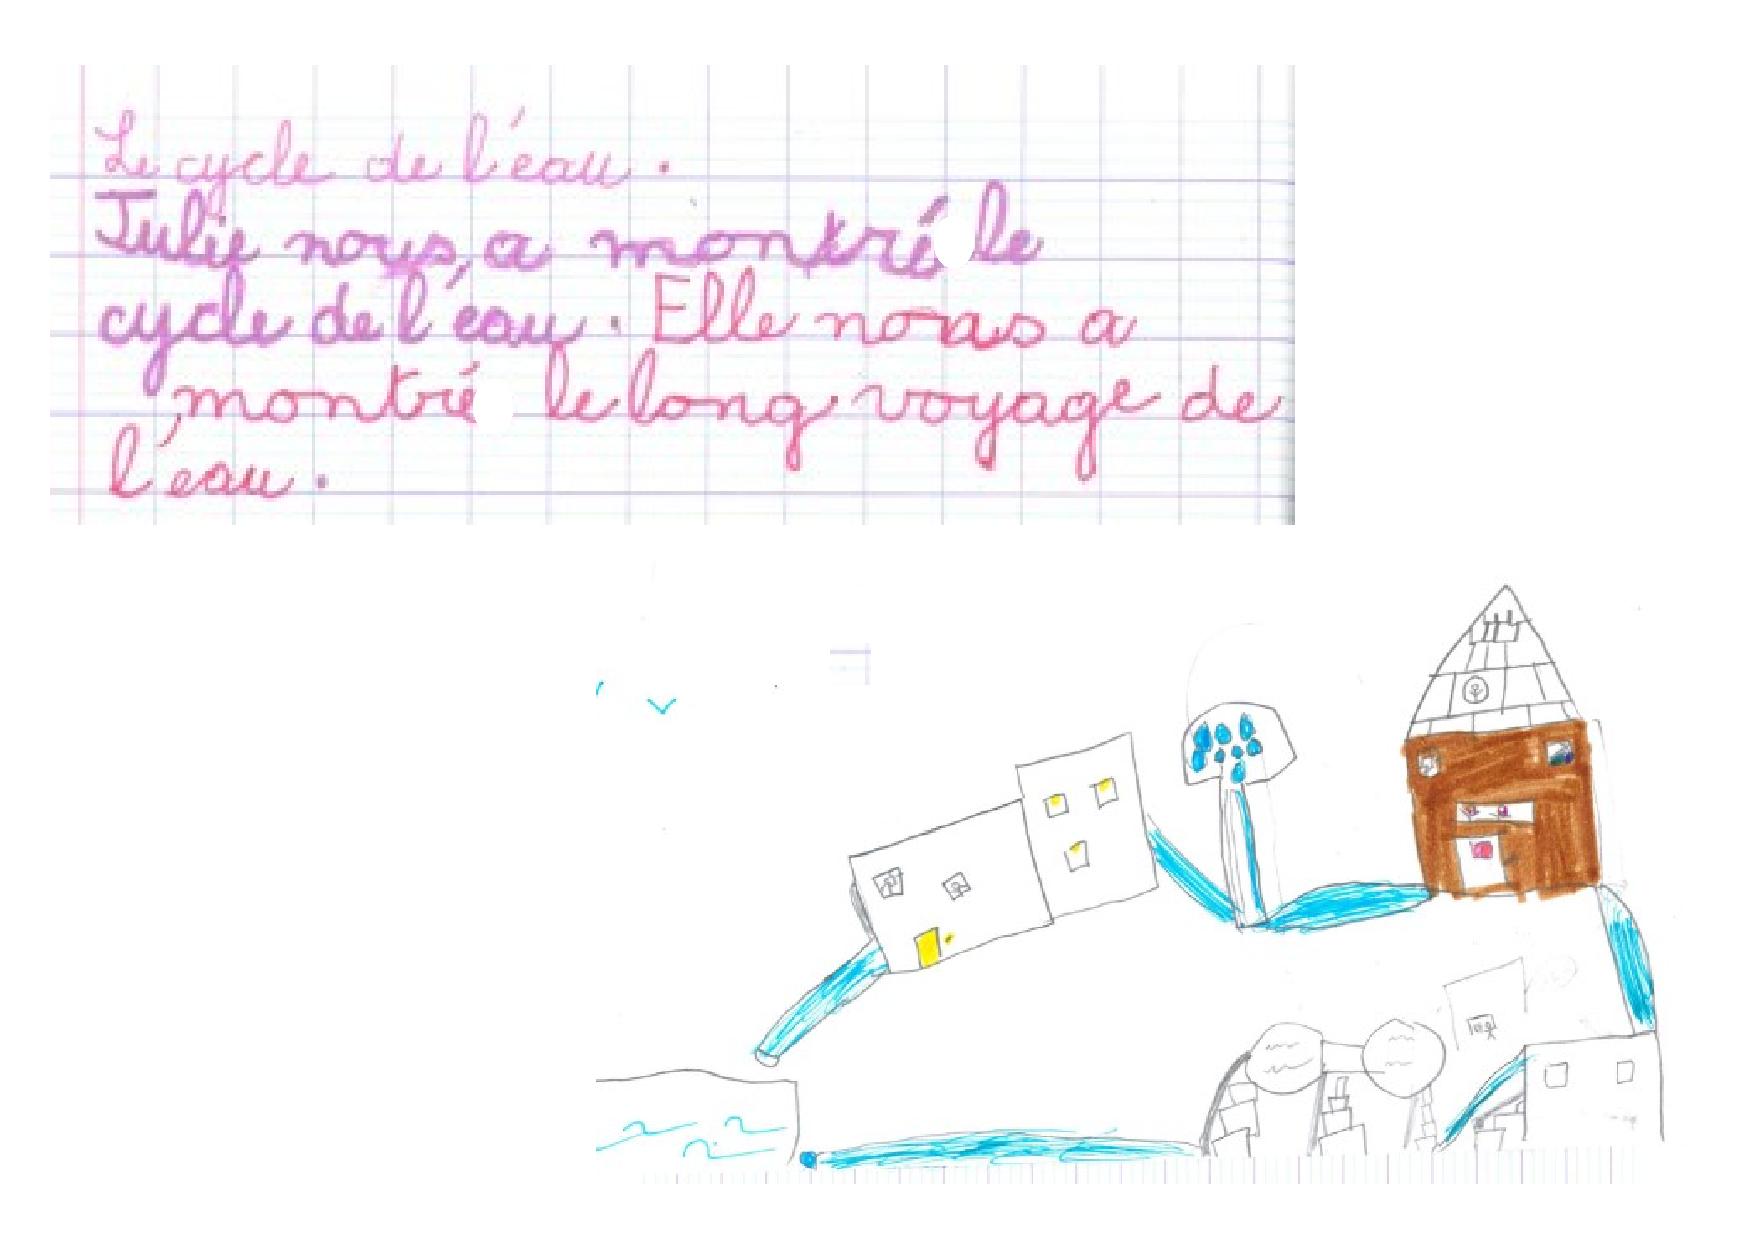 Le cycle de l'eau.
Julie nous a montré le
cycle de l'eau. Elle nous a
montré le long voyage de
l'eau.